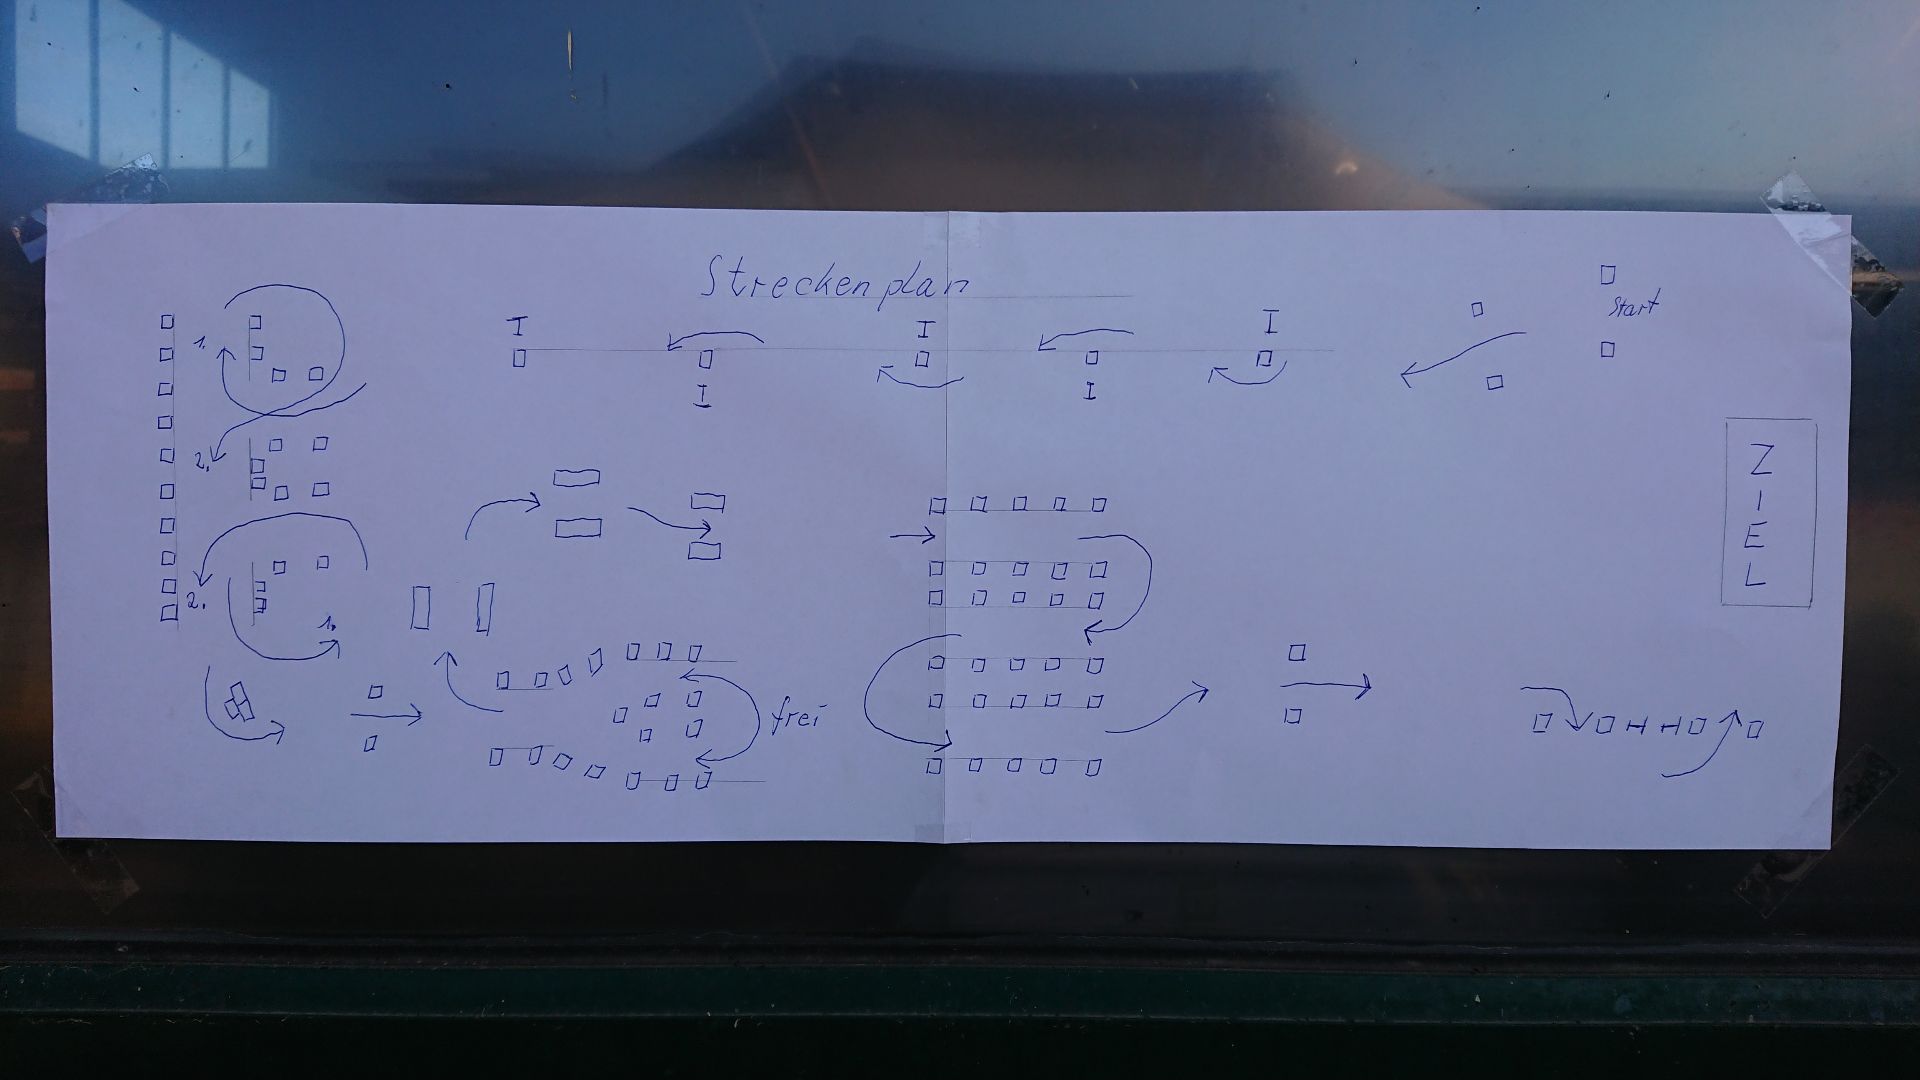 Streckenplan
Start
I
I
I
I
I
1.
2.
2.
1.
frei
Z
I
E
L